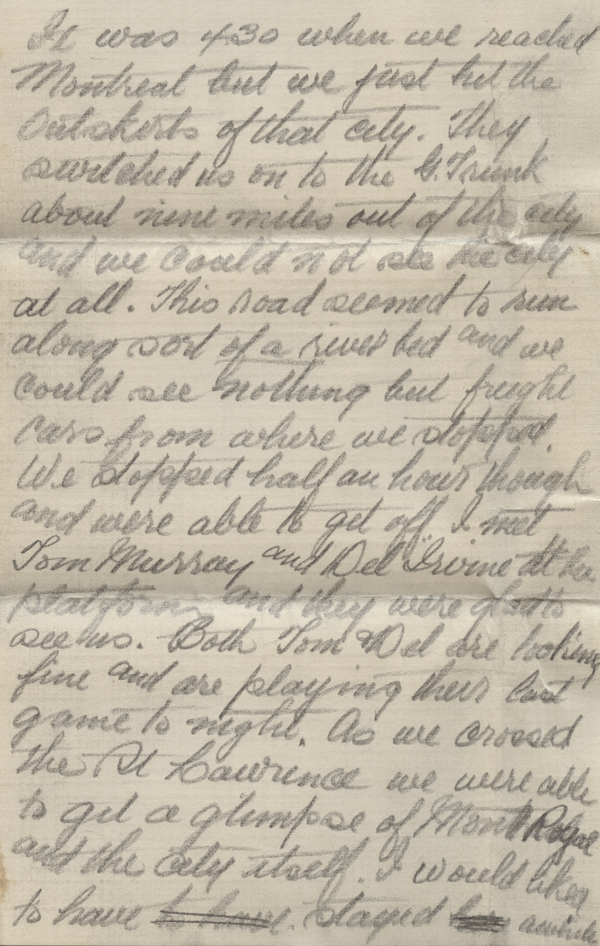 It was 430 when we reached
Montreal but we just hit the
Outskirts of that city. They
switched us on to the G. Trunk
about nine miles out of the city
and we could not see the city
at all. This road seemed to run
along sort of a river bed and we
could see nothing but freight
cars from where we stopped.
We stopped half an hour though
and were able to get off I met
Tom Murray and Del Irvine at the
platform and they were glad to
see us. Both Tom & Del are looking
fine and are playing their last
game to night. As we crossed
the St Lawrence we were able
to get a glimpse of Mont Royal
and the city itself. I would liked
to have to have. stayed awhile